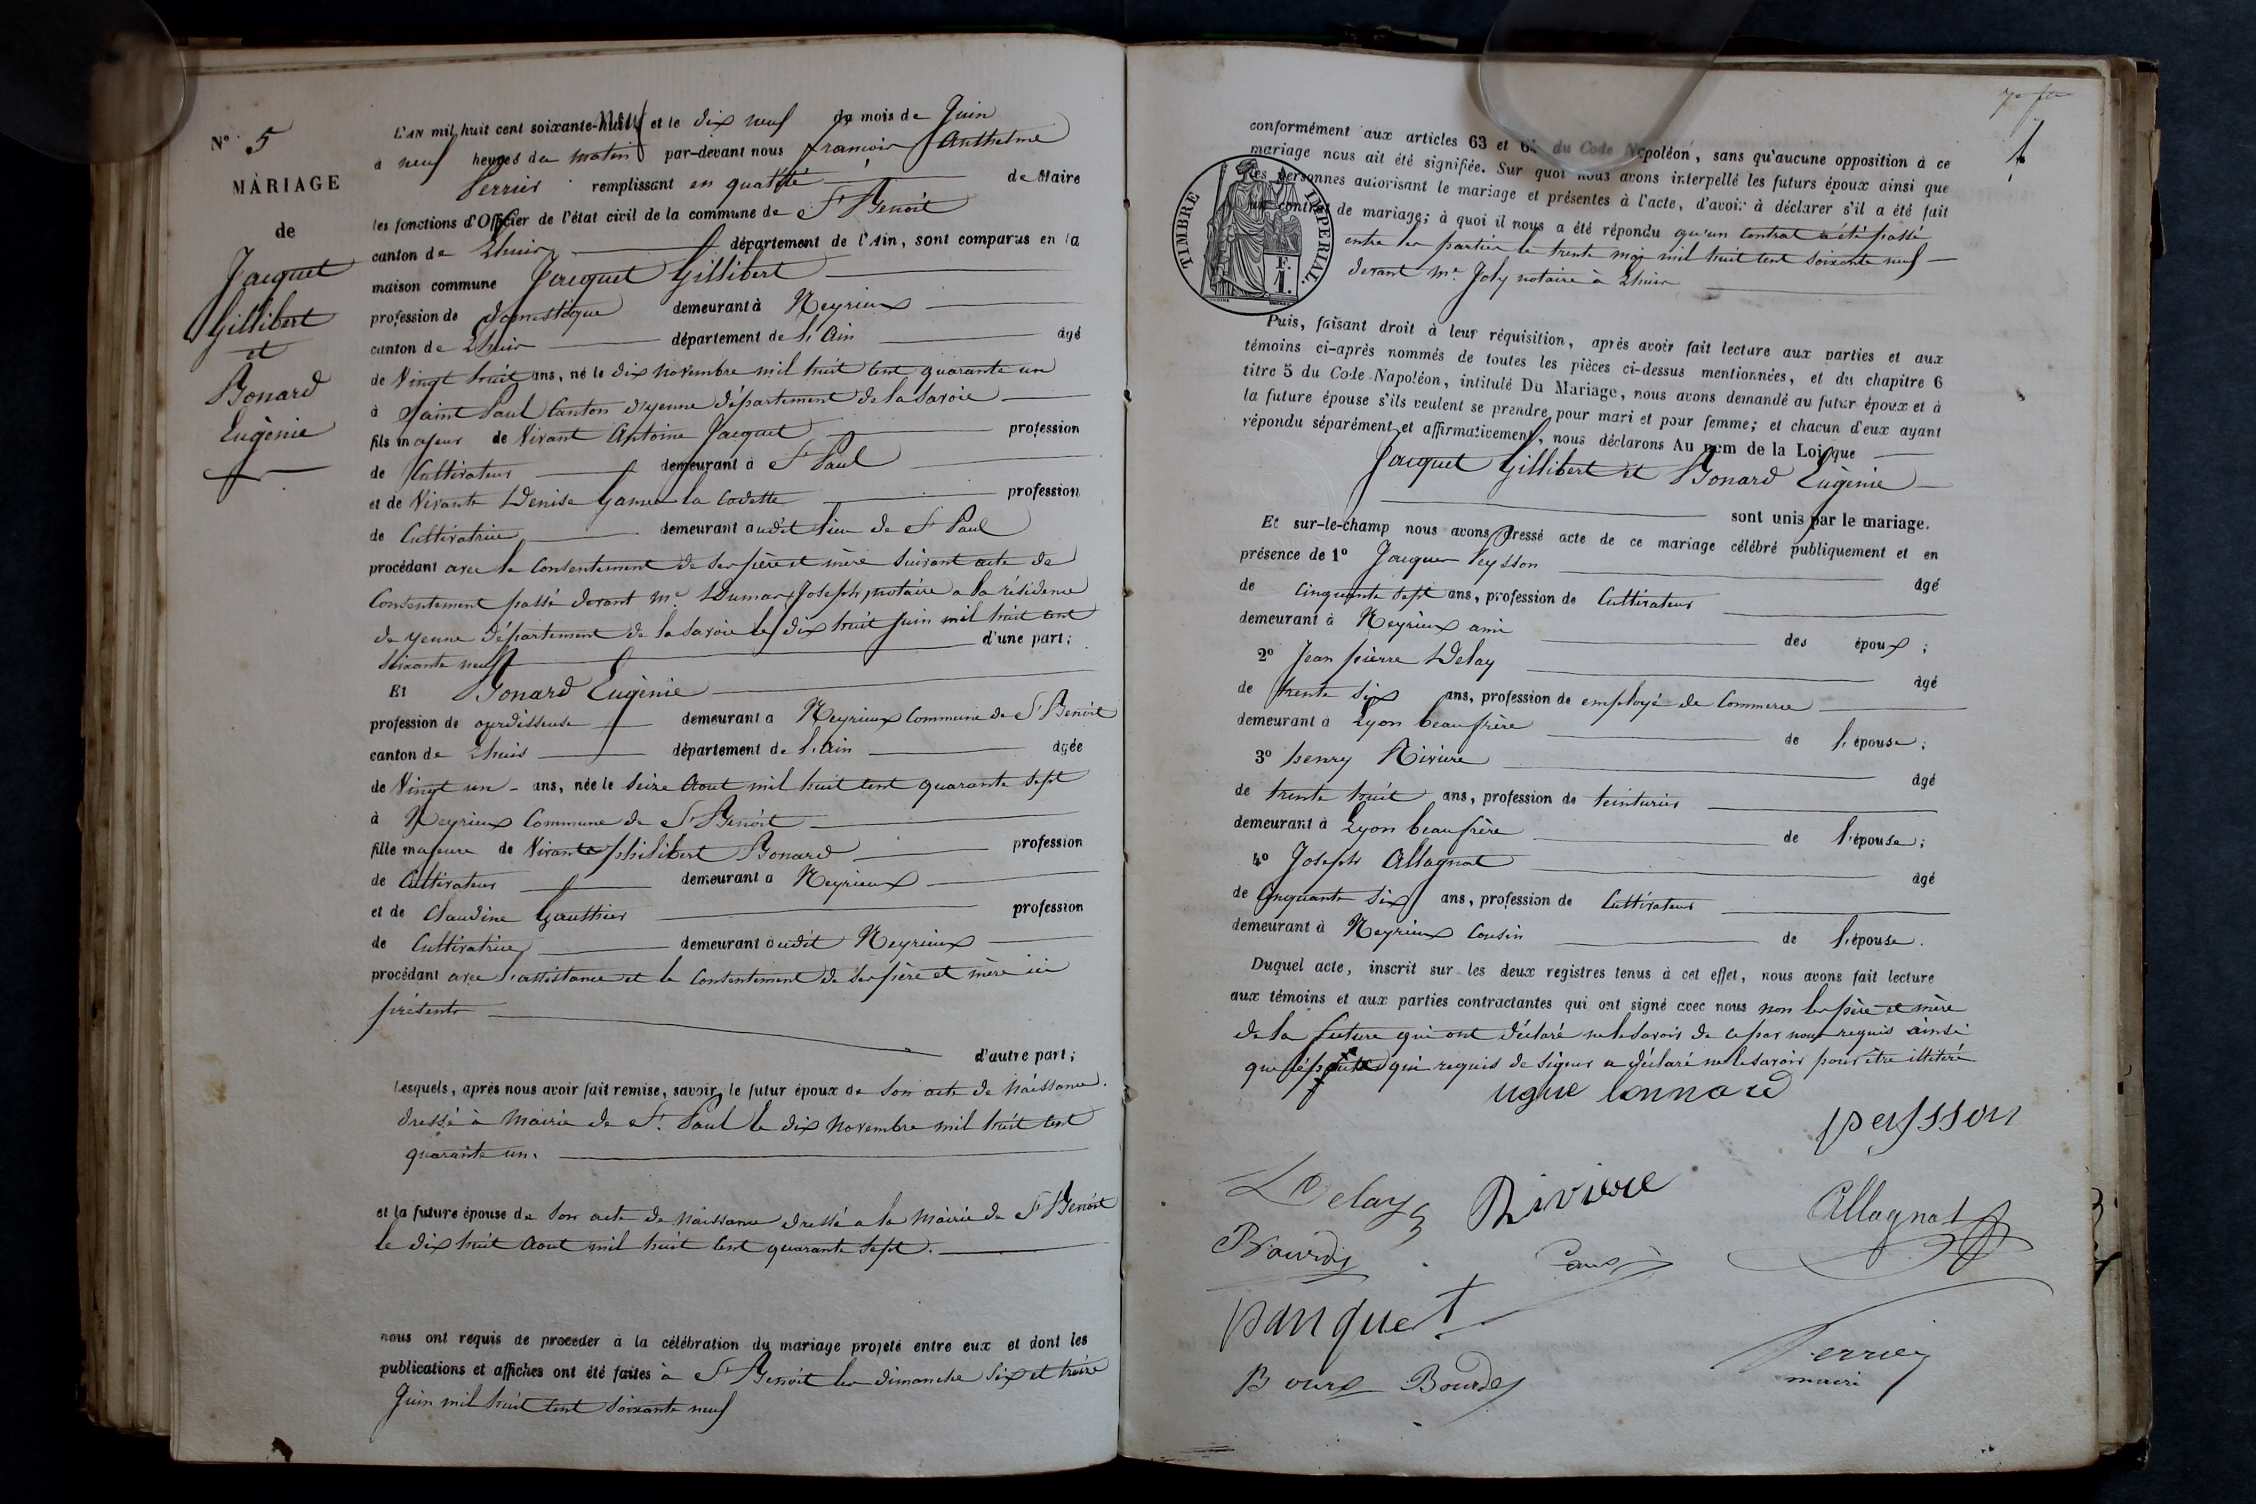 N° 5
MARIAGE
de
Jacquet
Gillibert
et
Bonard
Eugènie
L'AN mil huit cent soixante-neuf et le dix neuf du mois de Juin
à neuf heures du matin par-devant nous françois Anthelme
Perrier remplissant en qualité de Maire
les fonctions d'Officier de l'état civil de la commune de St Benoit
canton de Lhuis département de l'Ain, sont comparus en la
maison commune Jacquet Gillibert
profession de domestique demeurant à Neyrieux
canton de Lhuis département de l'Ain âgé
de Vingt huit ans, né le dix novembre mil huit cent quarante un
à Saint Paul Canton d'yenne département de la Savoie
fils majeur de Vivant Antoine Jacquet profession
de Cultivateur demeurant à St Paul
et de Vivante Denise Game la Cadette profession
de Cultivatrice demeurant audit lieu de St Paul
procédant avec le Consentement de ses père et mère suivant acte de
Consentement passé devant Me Dumas Joseph, notaire a la résidence
de yenne département de la Savoie le dix huit juin mil huit cent
soixante neuf d'une part;
Et Bonard Eugènie
profession de ourdisseuse demeurant a Neyrieux Commune de St Benoit
canton de Lhuis département de l'Ain âgée
de Vingt un ans, née le seize Aout mil huit cent quarante sept
à Neyrieux Commune de St Benoit
fille majeure de Vivant philibert Bonard profession
de Cultivateur demeurant a Neyrieux
et de Claudine Gauthier profession
de Cultivatrice demeurant audit Neyrieux
procédant avec l'assistance et le Consentement de ses père et mère ici
présents
d'autre part;
Lesquels, après nous avoir fait remise, savoir, le futur époux de son acte de Naissance
dressé à Mairie de St. Paul le dix Novembre mil huit cent
quarante un.
et la future épouse de son acte de Naissance dressé a la Mairie de St Benoit
le dix huit Aout mil huit cent quarante sept.
nous ont requis de proceder à la célébration du mariage projeté entre eux et dont les
publications et affiches ont été faites à St Benoit les dimanche six et treize
Juin mil huit cent soixante neuf
conformément aux articles 63 et du Code Napoléon, sans qu'aucune opposition à ce
mariage nous ait été signifiée. Sur quoi nous avons interpellé les futurs époux ainsi que
les personnes autorisant le mariage et présentes à l'acte, d'avoir à déclarer s'il a été fait
un contrat de mariage; à quoi il nous a été répondu qu'un Contrat a été passé
entre les parties le trente mai mil huit cent soixante neuf
devant Me Joly notaire à Lhuis
TIMBRE IMPERIAL.
F.
1.
Puis, faisant droit à leur réquisition, après avoir fait lecture aux parties et aux
témoins ci-après nommés de toutes les pièces ci-dessus mentionnées, et du chapitre 6
titre 5 du Code Napoléon, intitulé Du Mariage, nous avons demandé au futur époux et à
la future épouse s'ils veulent se prendre pour mari et pour femme; et chacun d'eux ayant
répondu séparément et affirmativement, nous déclarons Au nom de la Loi que
Jacquet Gillibert et Bonard Eugènie
sont unis par le mariage.
Et sur-le-champ nous avons dressé acte de ce mariage célébré publiquement et en
présence de 1° Jacques Peysson âgé
de Cinquante sept ans, profession de Cultivateur
demeurant à Neyrieux ami des époux;
2° Jean pierre Delay âgé
de trente six ans, profession de employé de Commerce
demeurant à Lyon beaufrère de l'épouse;
3° henry Riviere âgé
de trente huit ans, profession de teinturier
demeurant à Lyon beaufrère de l'épouse;
4° Joseph Allagnat âgé
de Cinquante six ans, profession de Cultivateur
demeurant à Neyrieux Cousin de l'épouse.
Duquel acte, inscrit sur les deux registres tenus à cet effet, nous avons fait lecture
aux témoins et aux parties contractantes qui ont signé avec nous non les père et mère
de la future qui ont déclaré ne le savoir de ce par nous requis ainsi
que qui requis de signer a déclaré ne le savoir pour être illitéré
peysson
Delay Riviere
Allagnat
Bourdy
panquet
Bourdy
Perrier
maire